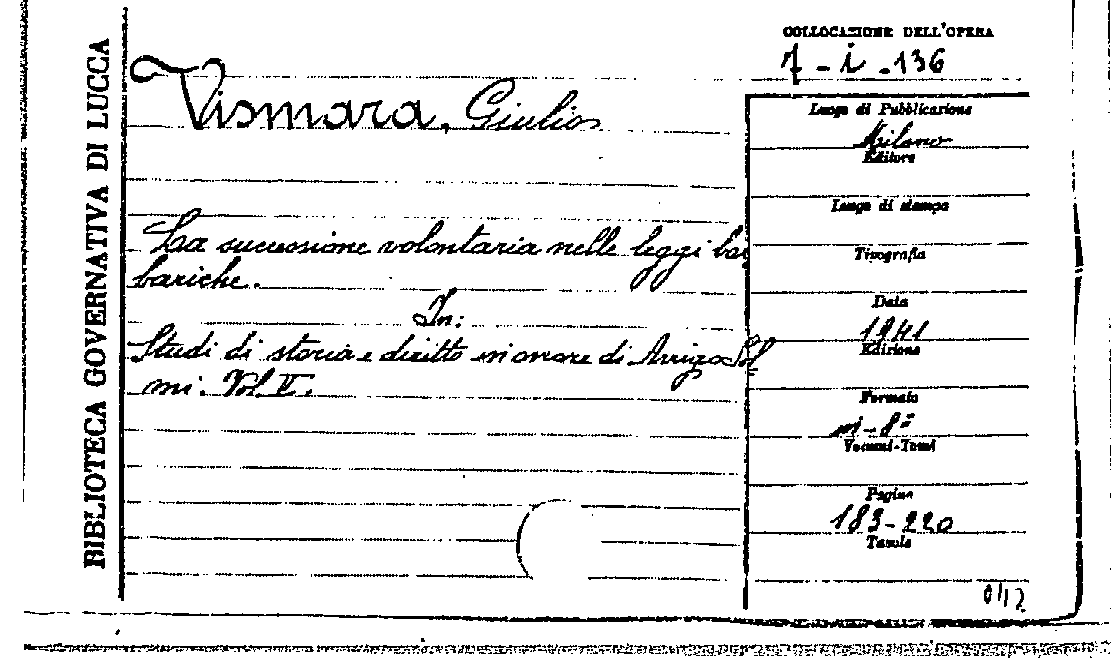 BIBLIOTECA GOVERNATIVA DI LUCCA
COLLOCAZIONE DELL'OPERA
7 - i - 136
Vismara, Giulio
La successione volontaria nelle leggi bar
bariche.
In:
Studi di storia e diritto in onore di Arrigo Sol
mi. Vol. II.
Luogo di Pubblicazione
Milano
Editore
Luogo di stampa
Tipografia
Data
1941
Edizione
Formato
in-8°
Volumi-Tomi
Pagine
183-220
Tavole